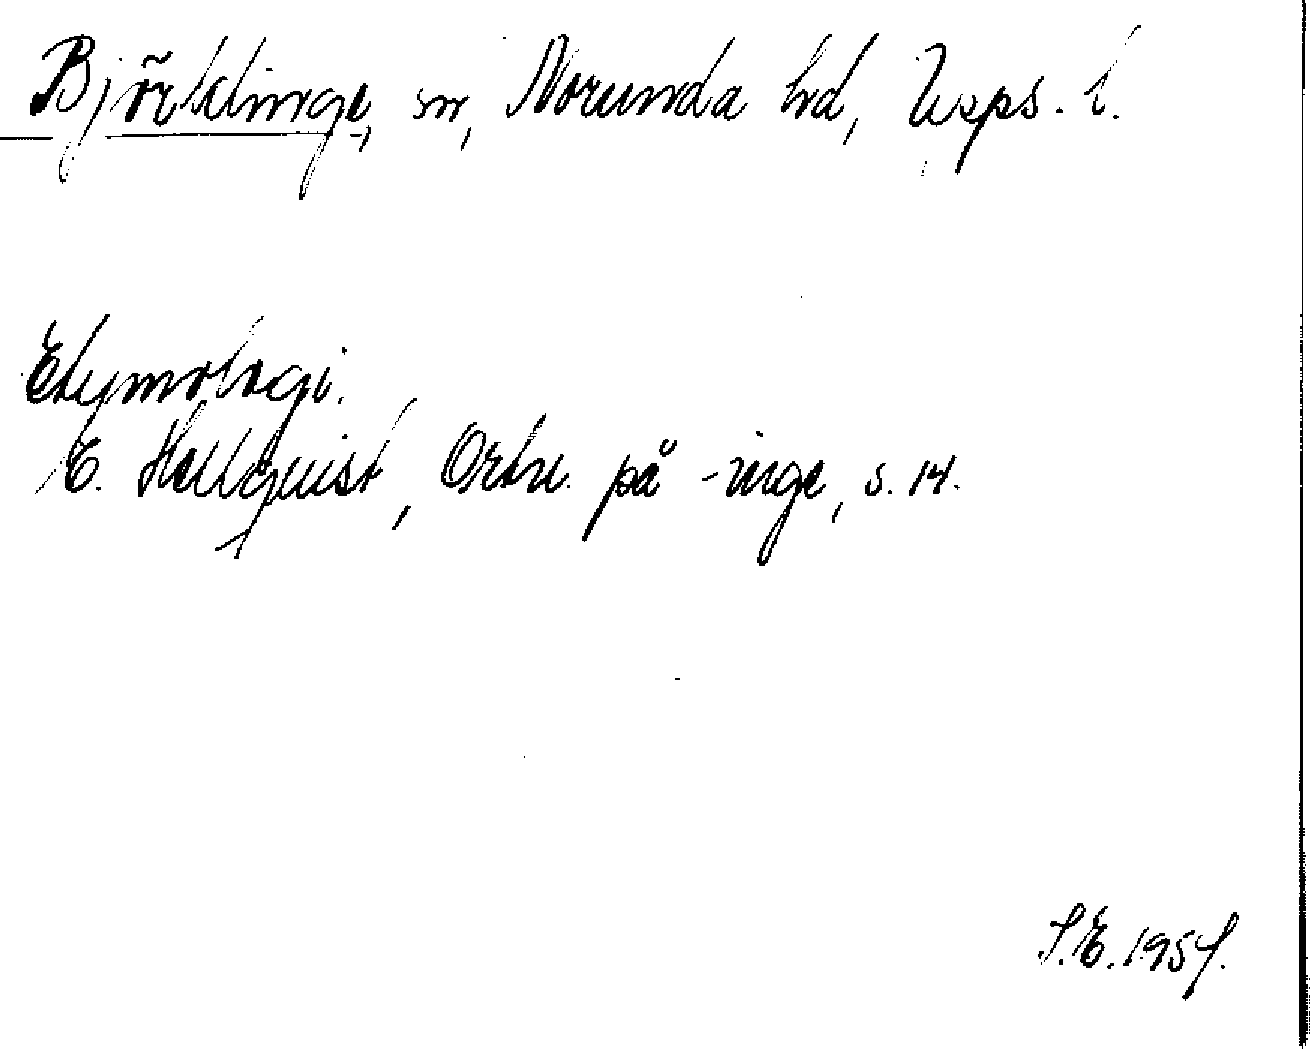 Björklinge, sn, Norunda hd, Upps. l.
Etymologi.
E. Hellquist, Ortn. på -inge, s. 14.
S.E. 1957.